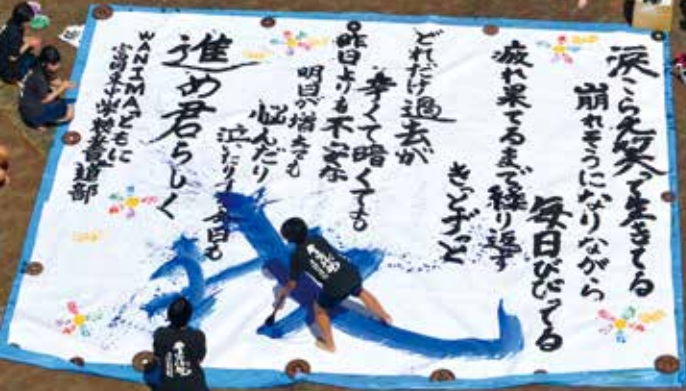 涙こらえ笑って生きてる
崩れそうになりながら
毎日びびってる
疲れ果てるまで繰り返す
きっとずっと
どれだけ過去が
辛くて暗くても
昨日よりも不安な
明日が増えても
悩んだり
泣いたりす 今日も
進め君らしく
WANIMAともに
東中学校書道部